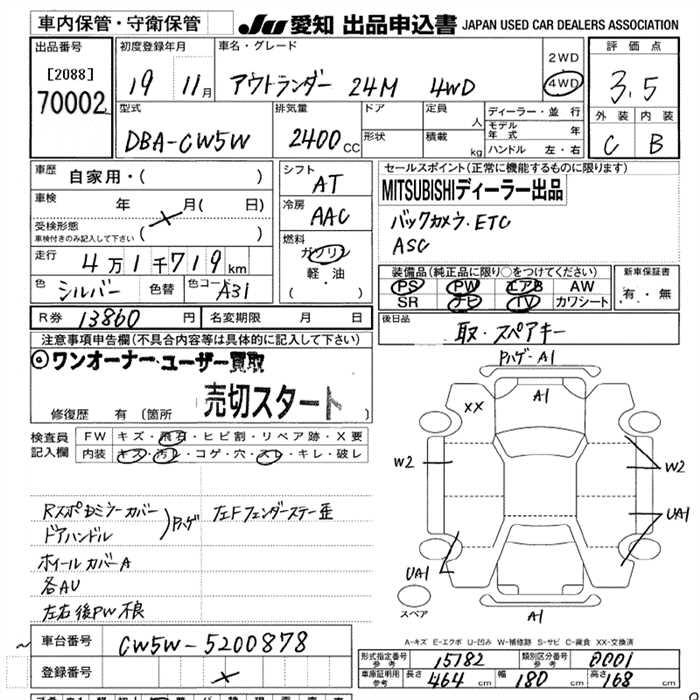 車内保管・守衛保管
JU 愛知 出品申込書 JAPAN USED CAR DEALERS ASSOCIATION
出品番号
[2088]
70002
初度登録年月
19 11月
車名・グレード
アウトランダー 24M 4WD
2WD
4WD
評価点
3.5
外装 内装
C B
型式
DBA-CW5W
排気量
2400cc
ドア
形状
定員
人
積載
kg
ディーラー・並行
モデル年式 年
ハンドル 左・右
車歴
自家用・( )
車検
年 月( 日)
受検形態
車検付きのみ記入して下さい
( )
走行
4万1千719km
色
シルバー
色替
色コード
A31
シフト
AT
冷房
AAC
燃料
ガソリン
軽・油
( )
セールスポイント(正常に機能するものに限ります)
MITSUBISHIディーラー出品
バックカメラ・ETC
ASC
装備品(純正品に限り○をつけてください)
PS PW エアB AW
SR ナビ TV カワシート
新車保証書
有・無
R券 13860円
名変期限 月 日
後日品
取・スペアキー
注意事項申告欄(不具合内容等は具体的に記入して下さい)
◎ワンオーナー・ユーザー買取
売切スタート
修復歴 有(箇所 )
検査員
記入欄
FW キズ・飛石・ヒビ割・リペア跡・X要
内装 キズ・汚レ・コゲ・穴・スレ・キレ・破レ
Rスポ
ドアハンドル
Pハゲ
左Fフェンダーステー歪
ホイールカバーA
各AU
左右後PW不良
PハゲA1
A1
XX
W2
W2
UA1
UA1
A1
スペア
A-キズ E-エクボ U-凹み W-補修跡 S-サビ C-腐食 XX-交換済
車台番号
CW5W-5200878
登録番号
形式指定番号
参考
15182
類別区分番号
参考
0001
車庫証明用
参考
長さ 464cm
幅 180cm
高さ 168cm